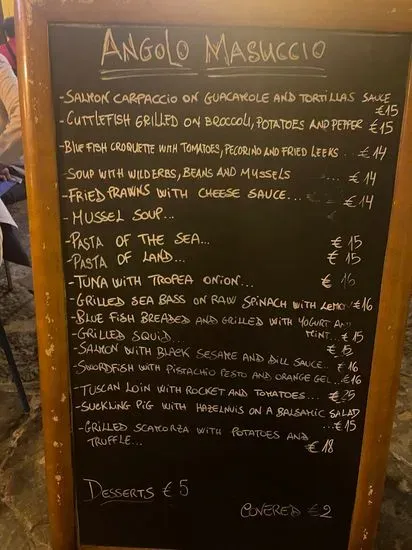 ANGOLO MASUCCIO
-SALMON CARPACCIO ON GUACAMOLE AND TORTILLAS SAUCE
€15
-CUTTLEFISH GRILLED ON BROCCOLI, POTATOES AND PEPPER €15
-BLUE FISH CROQUETTE WITH TOMATOES, PECORINO AND FRIED LEEKS... €14
-SOUP WITH WILDERBS, BEANS AND MUSSELS ... €14
-FRIED PRAWNS WITH CHEESE SAUCE... €14
-MUSSEL SOUP...
-PASTA OF THE SEA... €15
-PASTA OF LAND... €15
-TUNA WITH TROPEA ONION... € 16
-GRILLED SEA BASS ON RAW SPINACH WITH LEMON €16
-BLUE FISH BREADED AND GRILLED WITH YOGURT AND
MINT... €15
-GRILLED SQUID... € 15
-SALMON WITH BLACK SESAME AND DILL SAUCE.. €16
-SWORDFISH WITH PISTACHIO PESTO AND ORANGE GEL...€16
-TUSCAN LOIN WITH ROCKET AND TOMATOES... €25
-SUCKLING PIG WITH HAZELNUTS ON A BALSAMIC SALAD
...€15
-GRILLED SCATORZA WITH POTATOES AND
TRUFFLE... €18
DESSERTS €5
COVERED €2